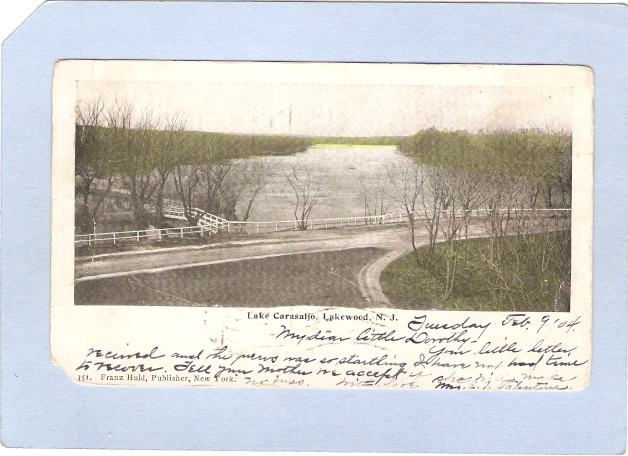 Lake Carasaljo, Lakewood, N. J.
Tuesday Feb. 9 '04
My dear little Dorothy-
Your little letter
received and the news was so startling I have not had time
to recover. Tell your Mother we accept if she'll make
no fuss. with love Mrs. Valentine
351. Franz Huld, Publisher, New York.